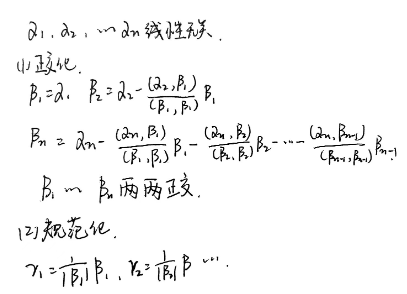 α₁, α₂, … αn 线性无关.
(1) 正交化.
β₁=α₁ β₂=α₂-(α₂,β₁)/(β₁,β₁) β₁
βn = αn-(αn,β₁)/(β₁,β₁) β₁-(αn,β₂)/(β₂,β₂) β₂-…-(αn,βn-1)/(βn-1,βn-1) βn-1
β₁ … βn 两两正交.
(2) 规范化.
γ₁=1/|β₁| β₁, γ₂=1/|β₂| β ….